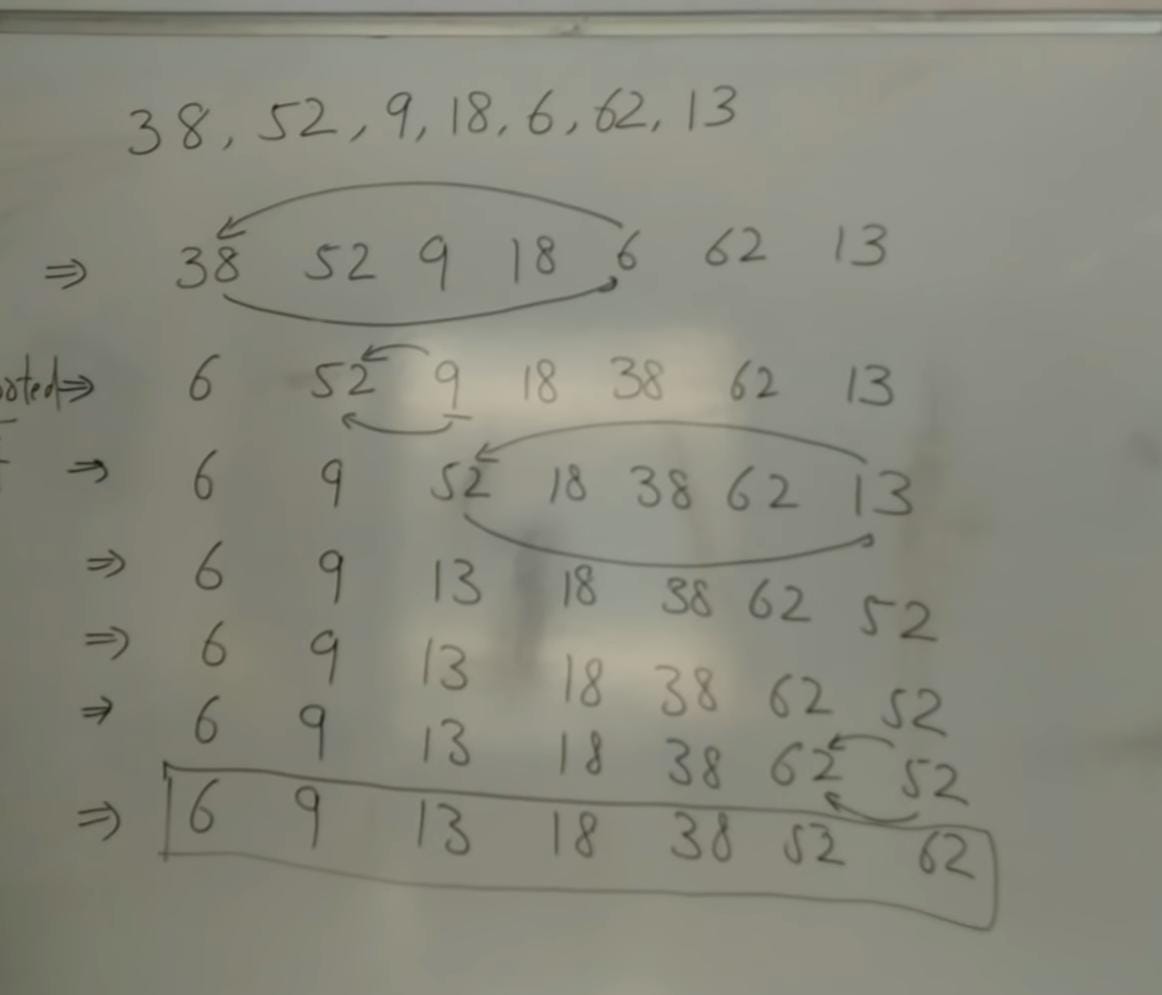 38, 52, 9, 18, 6, 62, 13
⇒ 38 52 9 18 6 62 13
⇒ 6 52 9 18 38 62 13
⇒ 6 9 52 18 38 62 13
⇒ 6 9 13 18 38 62 52
⇒ 6 9 13 18 38 62 52
⇒ 6 9 13 18 38 62 52
⇒ 6 9 13 18 38 52 62